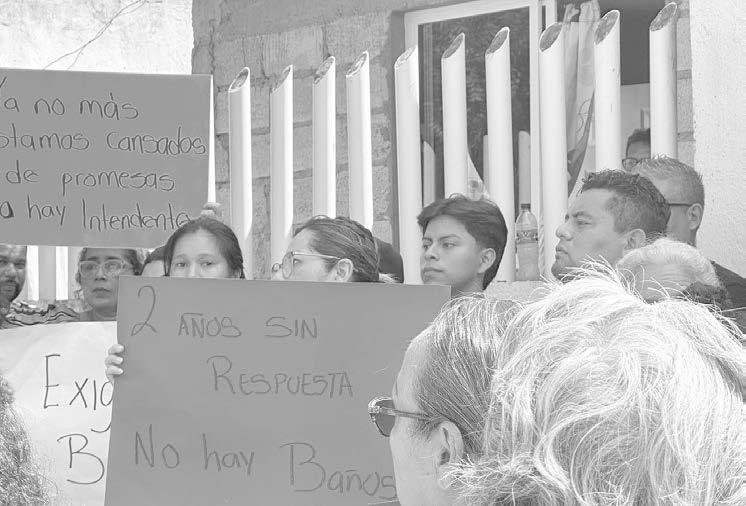 Ya no más
stamos cansados
de promesas
no hay Intendente
2 AÑOS SIN
RESPUESTA
No hay Baños
Exig
B